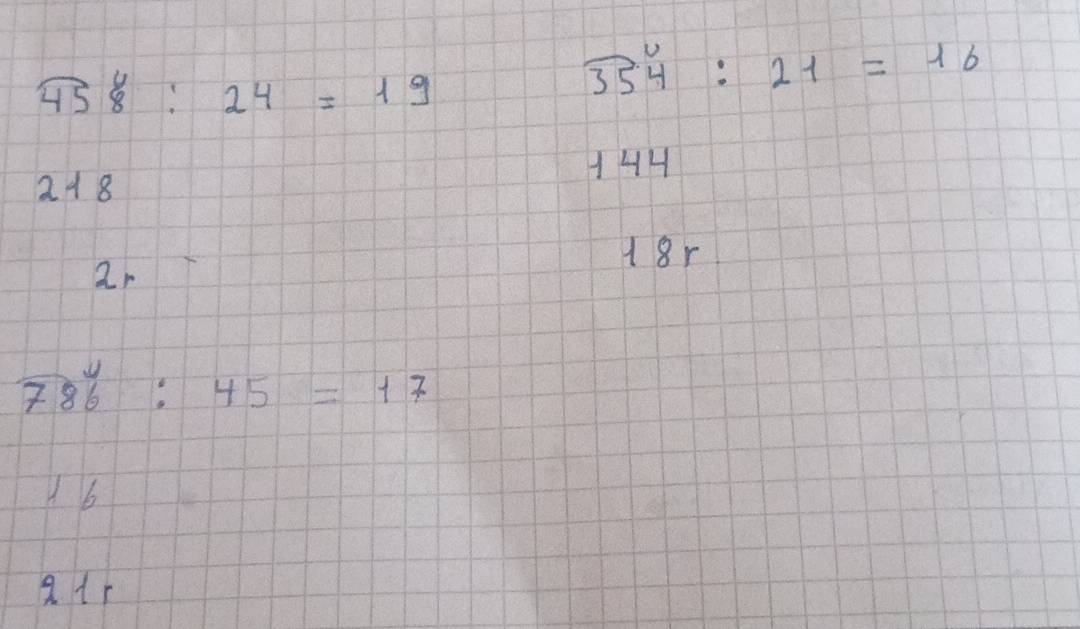 458 : 24 = 19
218
2r
354 : 21 = 16
144
18r
786 : 45 = 17
16
21r